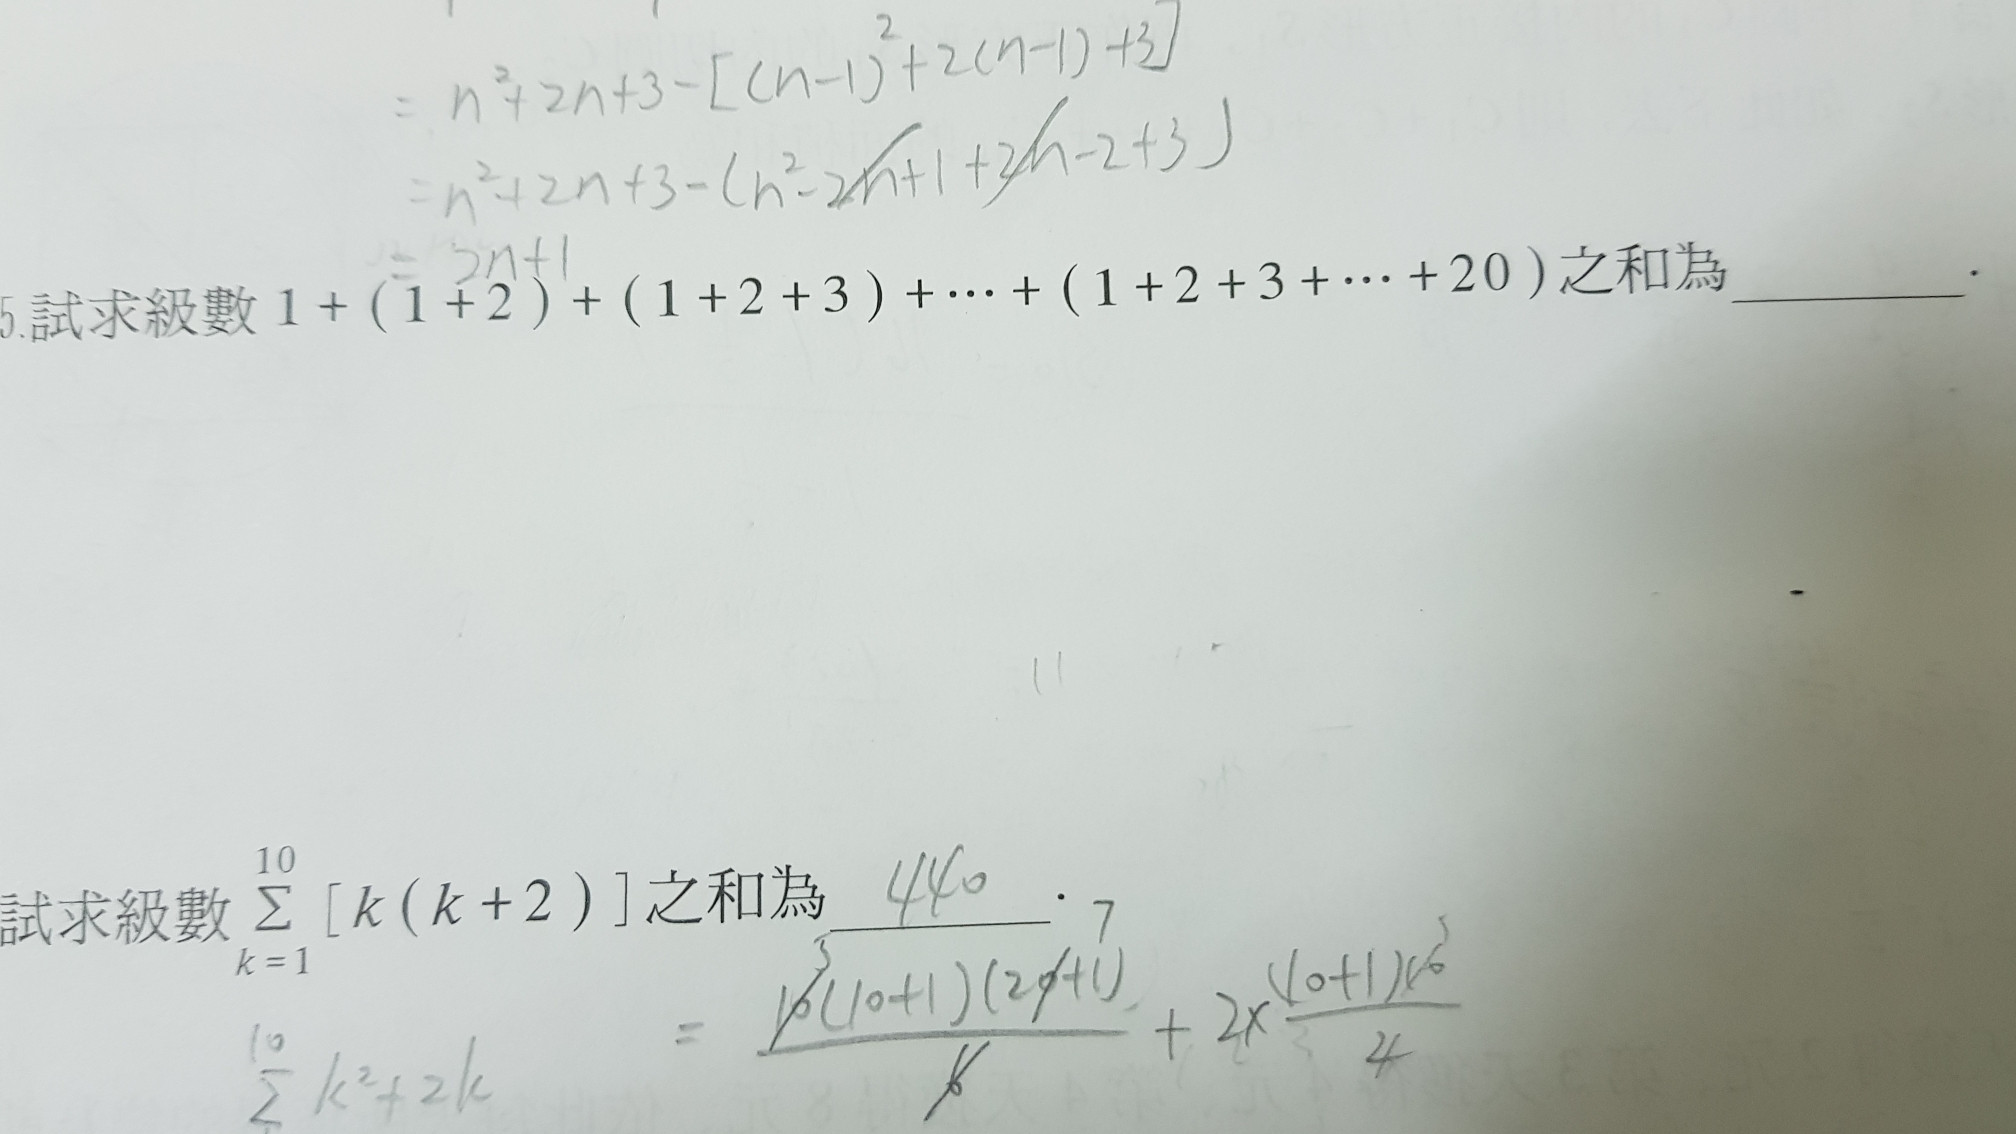 = n²+2n+3-[(n-1)²+2(n-1)+3]
=n²+2n+3-(n²-2n+1+2n-2+3)
= 2n+1
5.試求級數 1+(1+2)+(1+2+3)+⋯+(1+2+3+⋯+20)之和為________.
試求級數 \sum_{k=1}^{10} [k(k+2)]之和為 440 .
\sum^{10} k²+2k = \frac{10(10+1)(20+1)}{6} + 2x\frac{(10+1)10}{4}